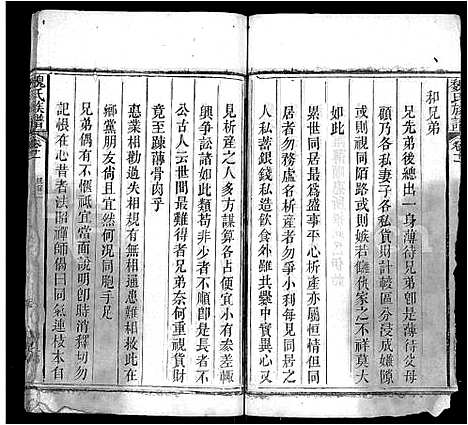 魏氏族譜
卷之一
和兄弟
兄先弟後總出一身薄待兄弟卽是薄待父母
顧乃各私妻子各私貨財計較區分浸成嫌隙
小則視同陌路大則嫉若讎仇家之不祥莫大
如此
累世同居最爲盛事平心析產亦屬恒情但同
居者勿務虛名析產者勿爭小利每見同居之
人私蓄銀錢私造飲食外雖共爨中實異心又
見析產之人多方謀算各占便宜小有參差輒
興爭訟諸如此類苟非少者不順卽是長者不
公古人云世間最難得者兄弟奈何重視貨財
竟至踈薄骨肉乎
德業相勸過失相規有無相通患難相救此在
鄉黨朋友尙且宜然何況同胞手足
兄弟偶有不愜祗宜當面說明卽時消釋切勿
記恨在心昔者法昭禪師偈曰同氣連枝本自
魏氏族譜
卷之一